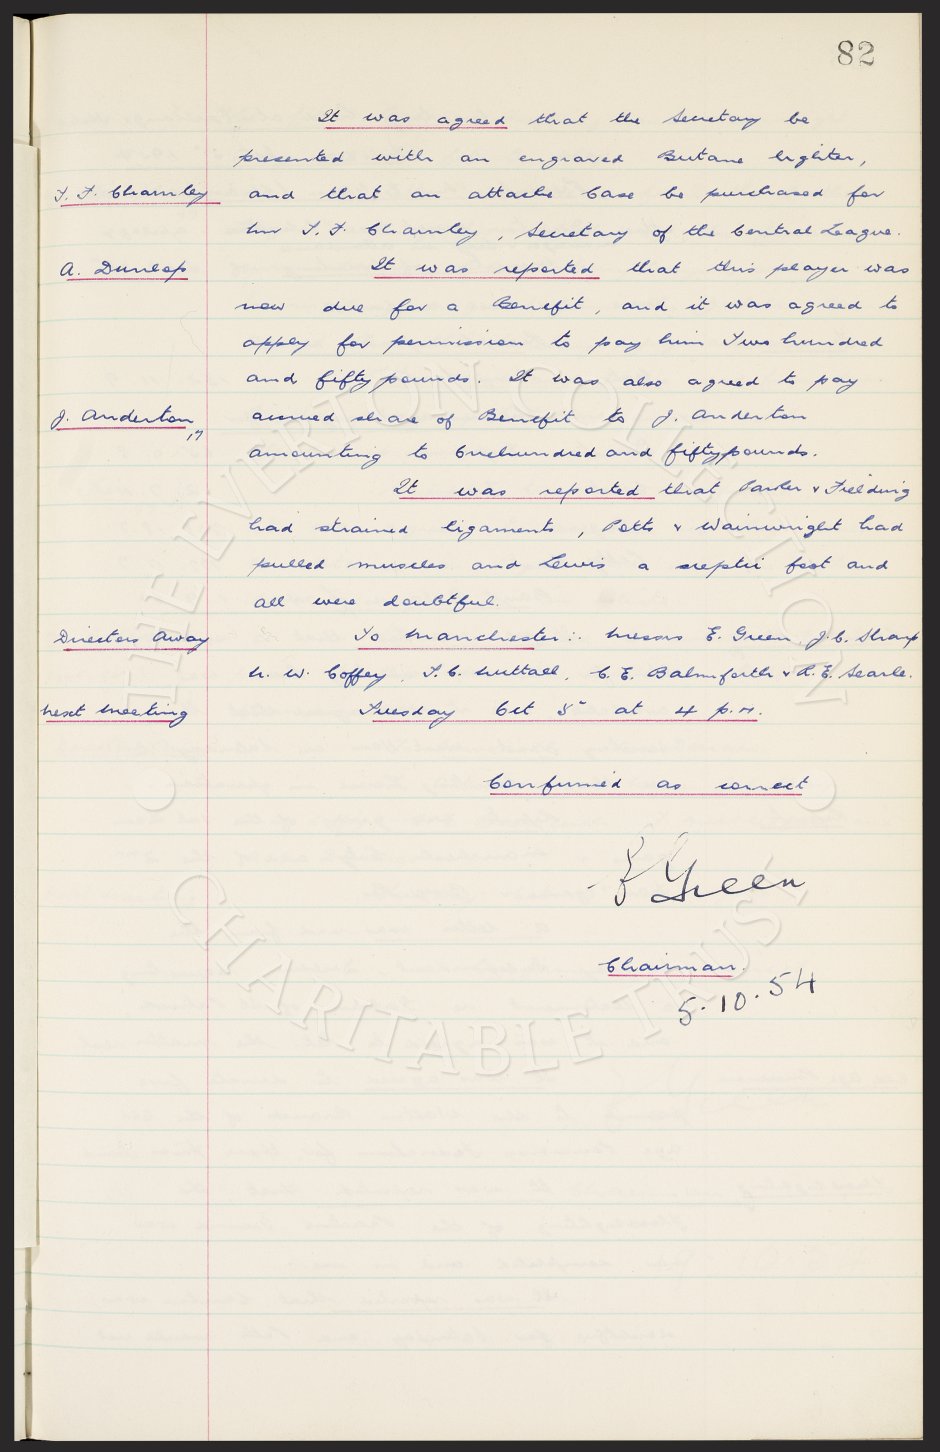 82
It was agreed that the Secretary be
presented with an engraved Butane lighter,
T. F. Charnley and that an attache Case be purchased for
Mr T. F. Charnley, Secretary of the Central League.
A. Dunlop It was reported that this player was
now due for a Benefit, and it was agreed to
apply for permission to pay him Two hundred
and fifty pounds. It was also agreed to pay
J. Anderton accrued share of Benefit to J. Anderton
amounting to Onehundred and fiftypounds.
It was reported that Parker & Fielding
had strained ligaments, Potts & Wainwright had
pulled muscles and Lewis a septic foot and
all were doubtful.
Directors Away To Manchester:- Messrs E. Green, J. C. Sharp
N. W. Coffey, T. C. Nuttall, C. E. Balmforth & R. E. Searle.
Next Meeting Tuesday Oct 5" at 4 p.m.
Confirmed as correct
E Green
Chairman.
5.10.54
THE EVERTON COLLECTION
CHARITABLE TRUST